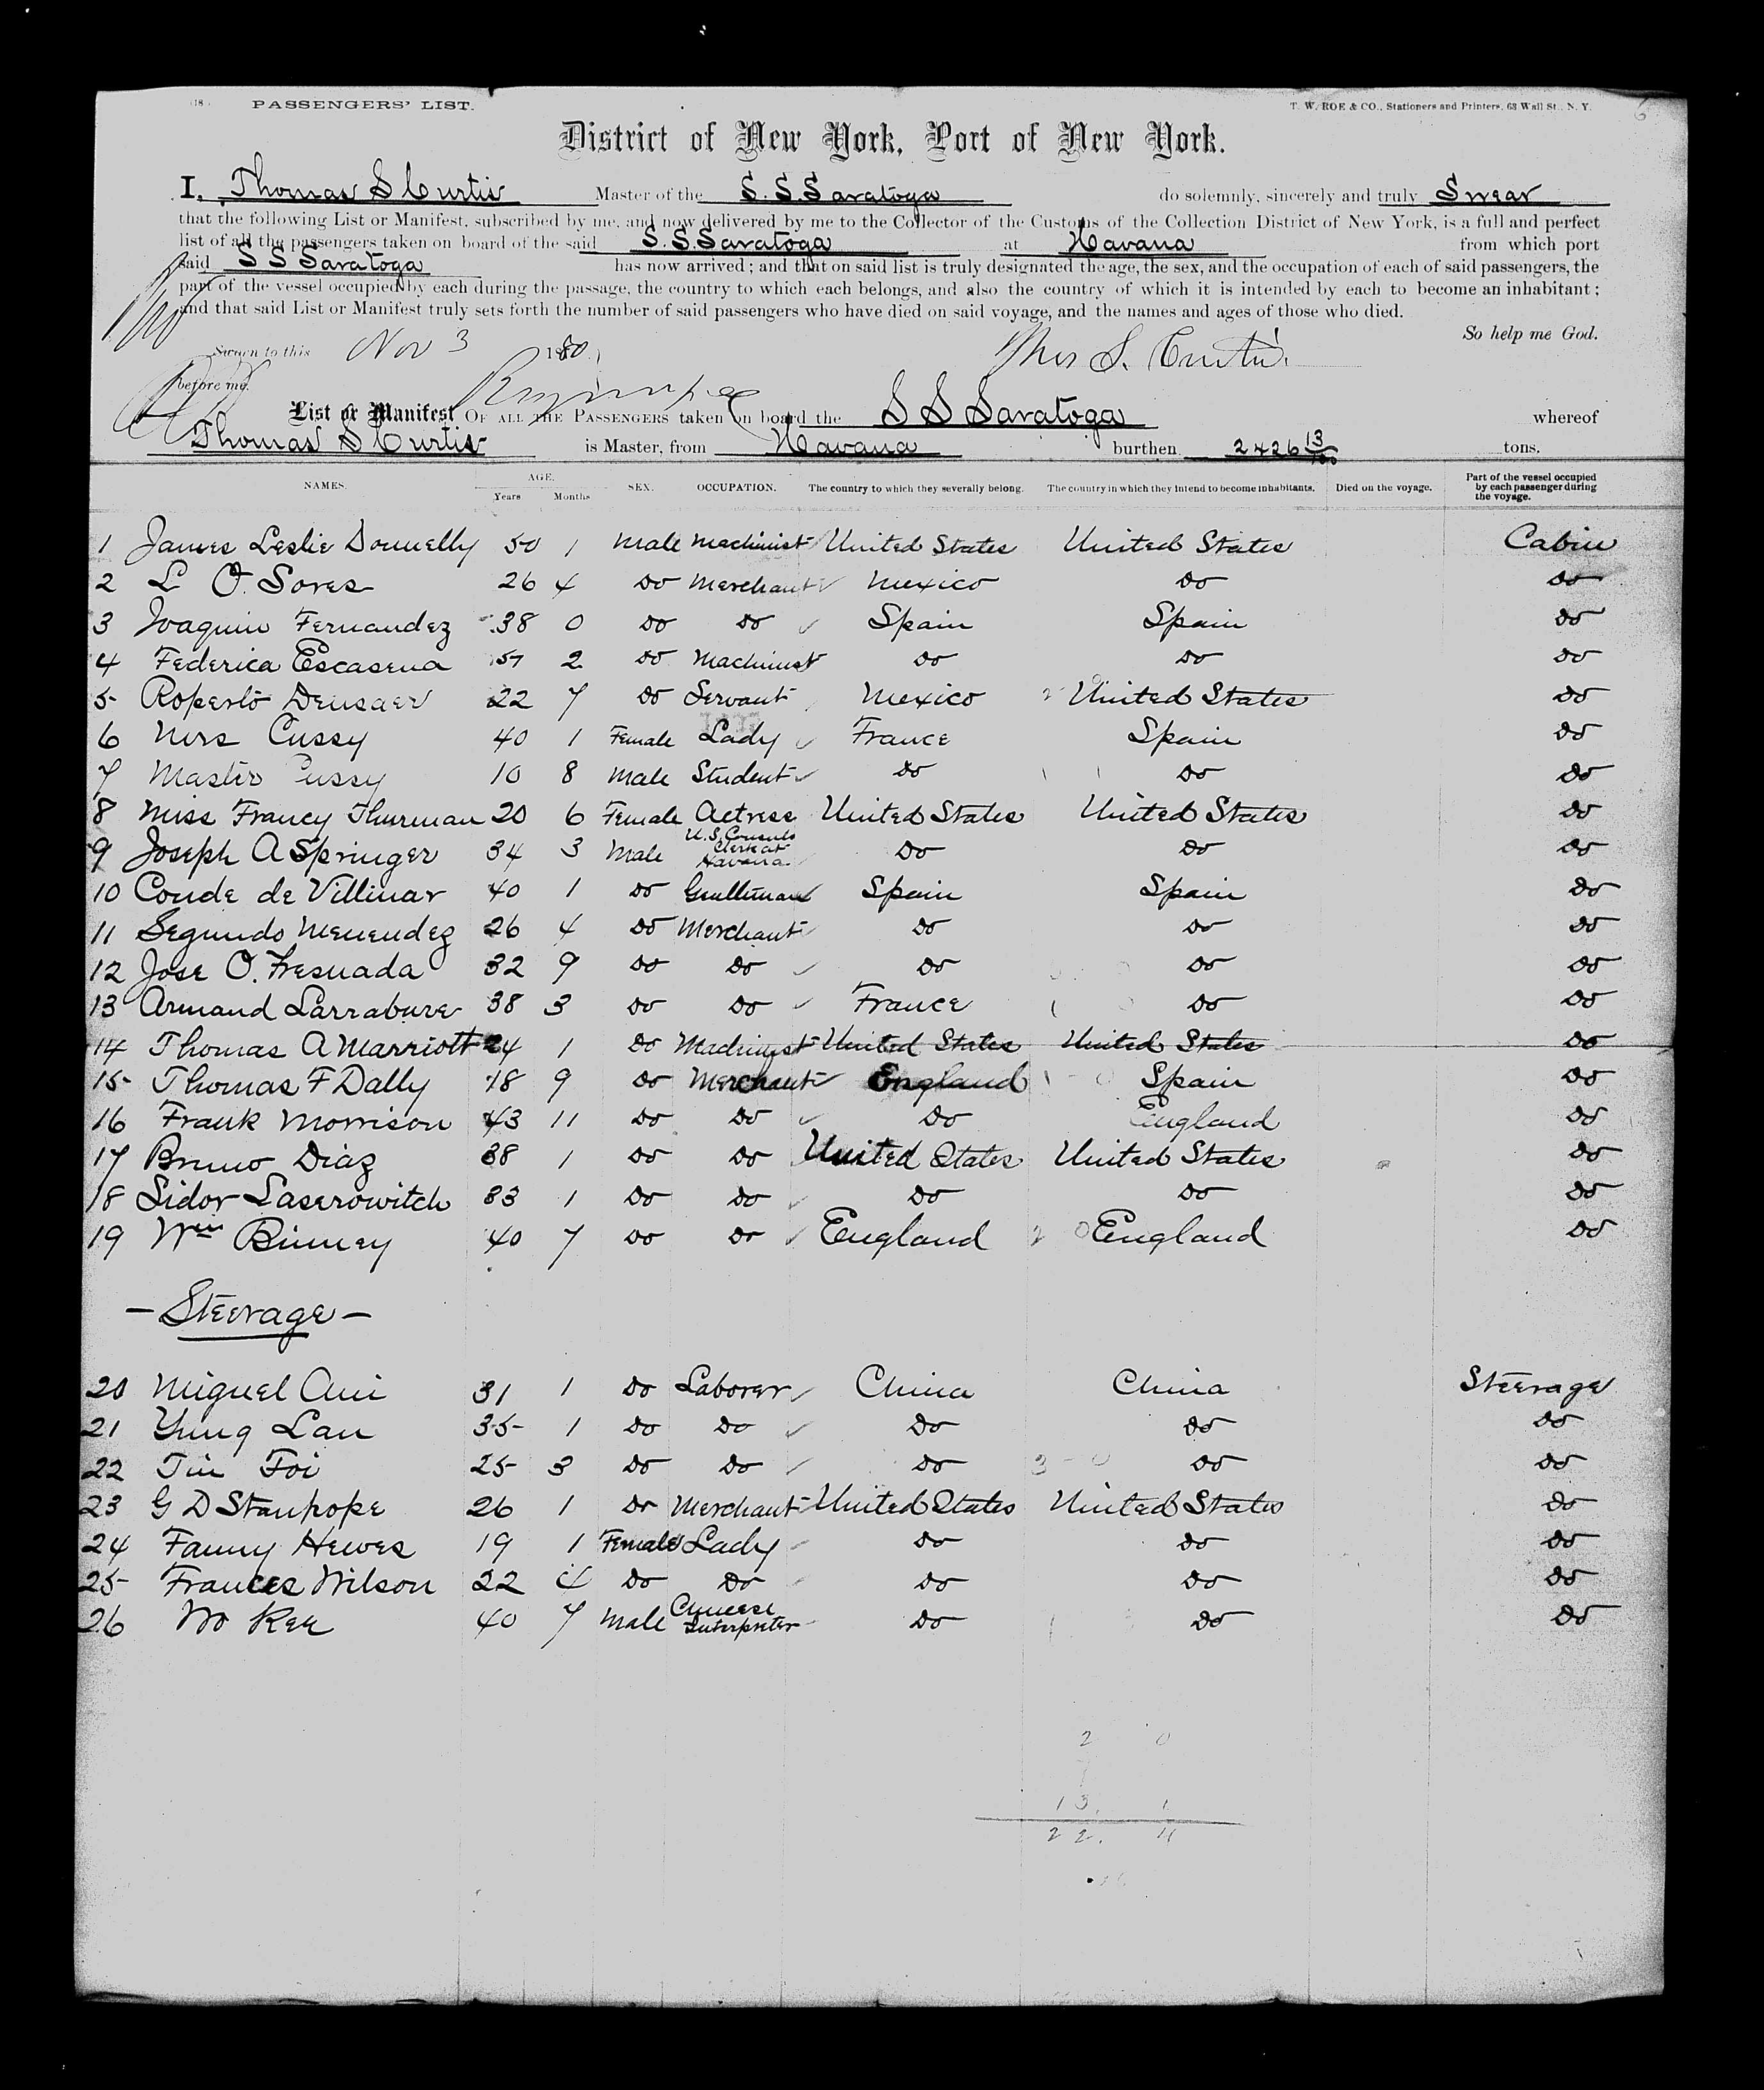 18 PASSENGERS' LIST. T. W. ROE & CO., Stationers and Printers, 63 Wall St., N. Y. 6
District of New York, Port of New York.
I, Thomas S Curtis Master of the S. S. Saratoga do solemnly, sincerely and truly Swear
that the following List or Manifest, subscribed by me, and now delivered by me to the Collector of the Customs of the Collection District of New York, is a full and perfect
list of all the passengers taken on board of the said S. S. Saratoga at Havana from which port
said S S Saratoga has now arrived; and that on said list is truly designated the age, the sex, and the occupation of each of said passengers, the
part of the vessel occupied by each during the passage, the country to which each belongs, and also the country of which it is intended by each to become an inhabitant;
and that said List or Manifest truly sets forth the number of said passengers who have died on said voyage, and the names and ages of those who died.
So help me God.
Sworn to this Nov 3 1880 Thos S. Curtis
before me
List or Manifest OF ALL THE PASSENGERS taken on board the S S Saratoga whereof
Thomas S Curtis is Master, from Havana burthen 2426 13/100 tons.
NAMES. AGE. Years Months SEX. OCCUPATION. The country to which they severally belong. The country in which they intend to become inhabitants. Died on the voyage. Part of the vessel occupied by each passenger during the voyage.
1 James Leslie Donnelly 50 1 Male Machinist United States United States Cabin
2 L O. Sores 26 4 do Merchant Mexico do do
3 Joaquin Fernandez 38 0 do do Spain Spain do
4 Federica Escasena 57 2 do Machinist do do do
5 Roperto Deusaer 22 7 do Servant Mexico United States do
6 Mrs Cussy 40 1 Female Lady France Spain do
7 Master Cussy 10 8 Male Student do do do
8 Miss Francy Thurman 20 6 Female Actress United States United States do
9 Joseph A Springer 34 3 Male U.S. Consuls Clerk at Havana do do do
10 Conde de Villinar 40 1 do Gentleman Spain Spain do
11 Segundo Menendez 26 4 do Merchant do do do
12 Jose O. Fresnada 32 9 do do do do do
13 Armand Larrabure 38 3 do do France do do
14 Thomas A Marriott 24 1 do Machinist United States United States do
15 Thomas F Dally 18 9 do Merchant England Spain do
16 Frank Morrison 43 11 do do do England do
17 Bruno Diaz 38 1 do do United States United States do
18 Sidor Laserowitch 33 1 do do do do do
19 Wm Binney 40 7 do do England England do
- Steerage -
20 Miguel Ani 31 1 do Laborer China China Steerage
21 Yung Lan 35 1 do do do do do
22 Tin Foi 25 3 do do do do do
23 G D Stanhope 26 1 do Merchant United States United States do
24 Fanny Hewes 19 1 Female Lady do do do
25 Frances Wilson 22 4 do do do do do
26 Wo Kee 40 7 Male Chinese Interpreter do do do
2 0
13. 1
22.